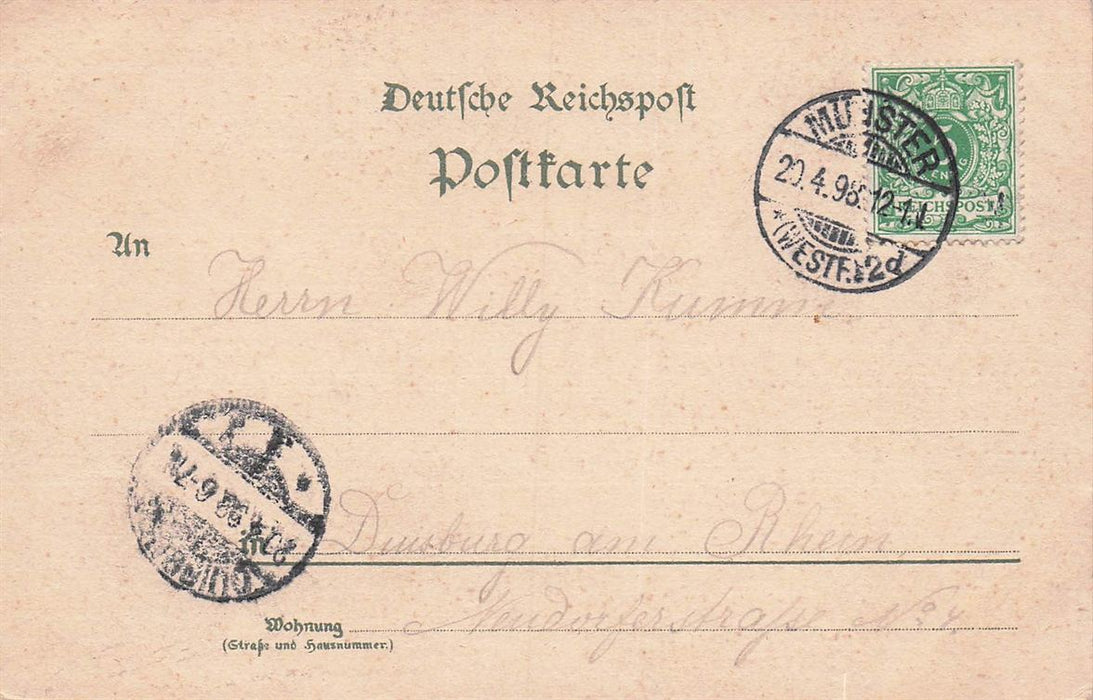 Deutsche Reichspost
Postkarte
MÜNSTER
20.4.98.12-1.N.
* (WESTF.) * 2d
REICHSPOST
An
Herrn Willy Kumm
in Duisburg am Rhein,
Wohnung Neudorferstraße No 4
(Straße und Hausnummer.)
DUISBURG